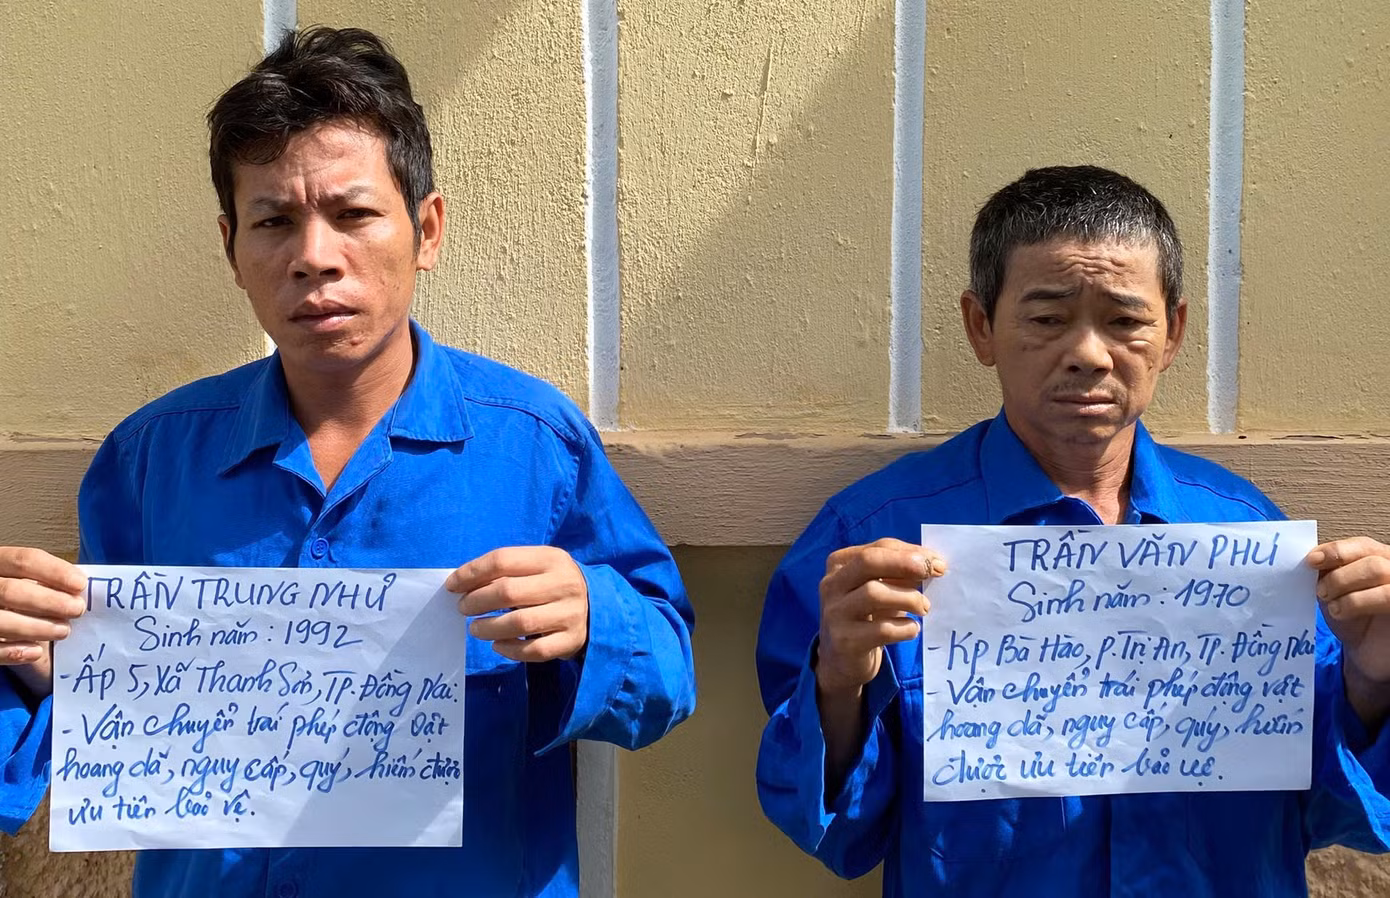 TRẦN TRUNG NHƯ
Sinh năm : 1992
- Ấp 5, Xã Thanh Sơn, TP. Đồng Nai.
- Vận chuyển trái phép động vật
hoang dã, nguy cấp, quý, hiếm được
ưu tiên bảo vệ.
TRẦN VĂN PHÚ
Sinh năm : 1970
- Kp Bà Hào, P. Trị An, TP. Đồng Nai
- Vận chuyển trái phép động vật
hoang dã, nguy cấp, quý, hiếm
được ưu tiên bảo vệ.